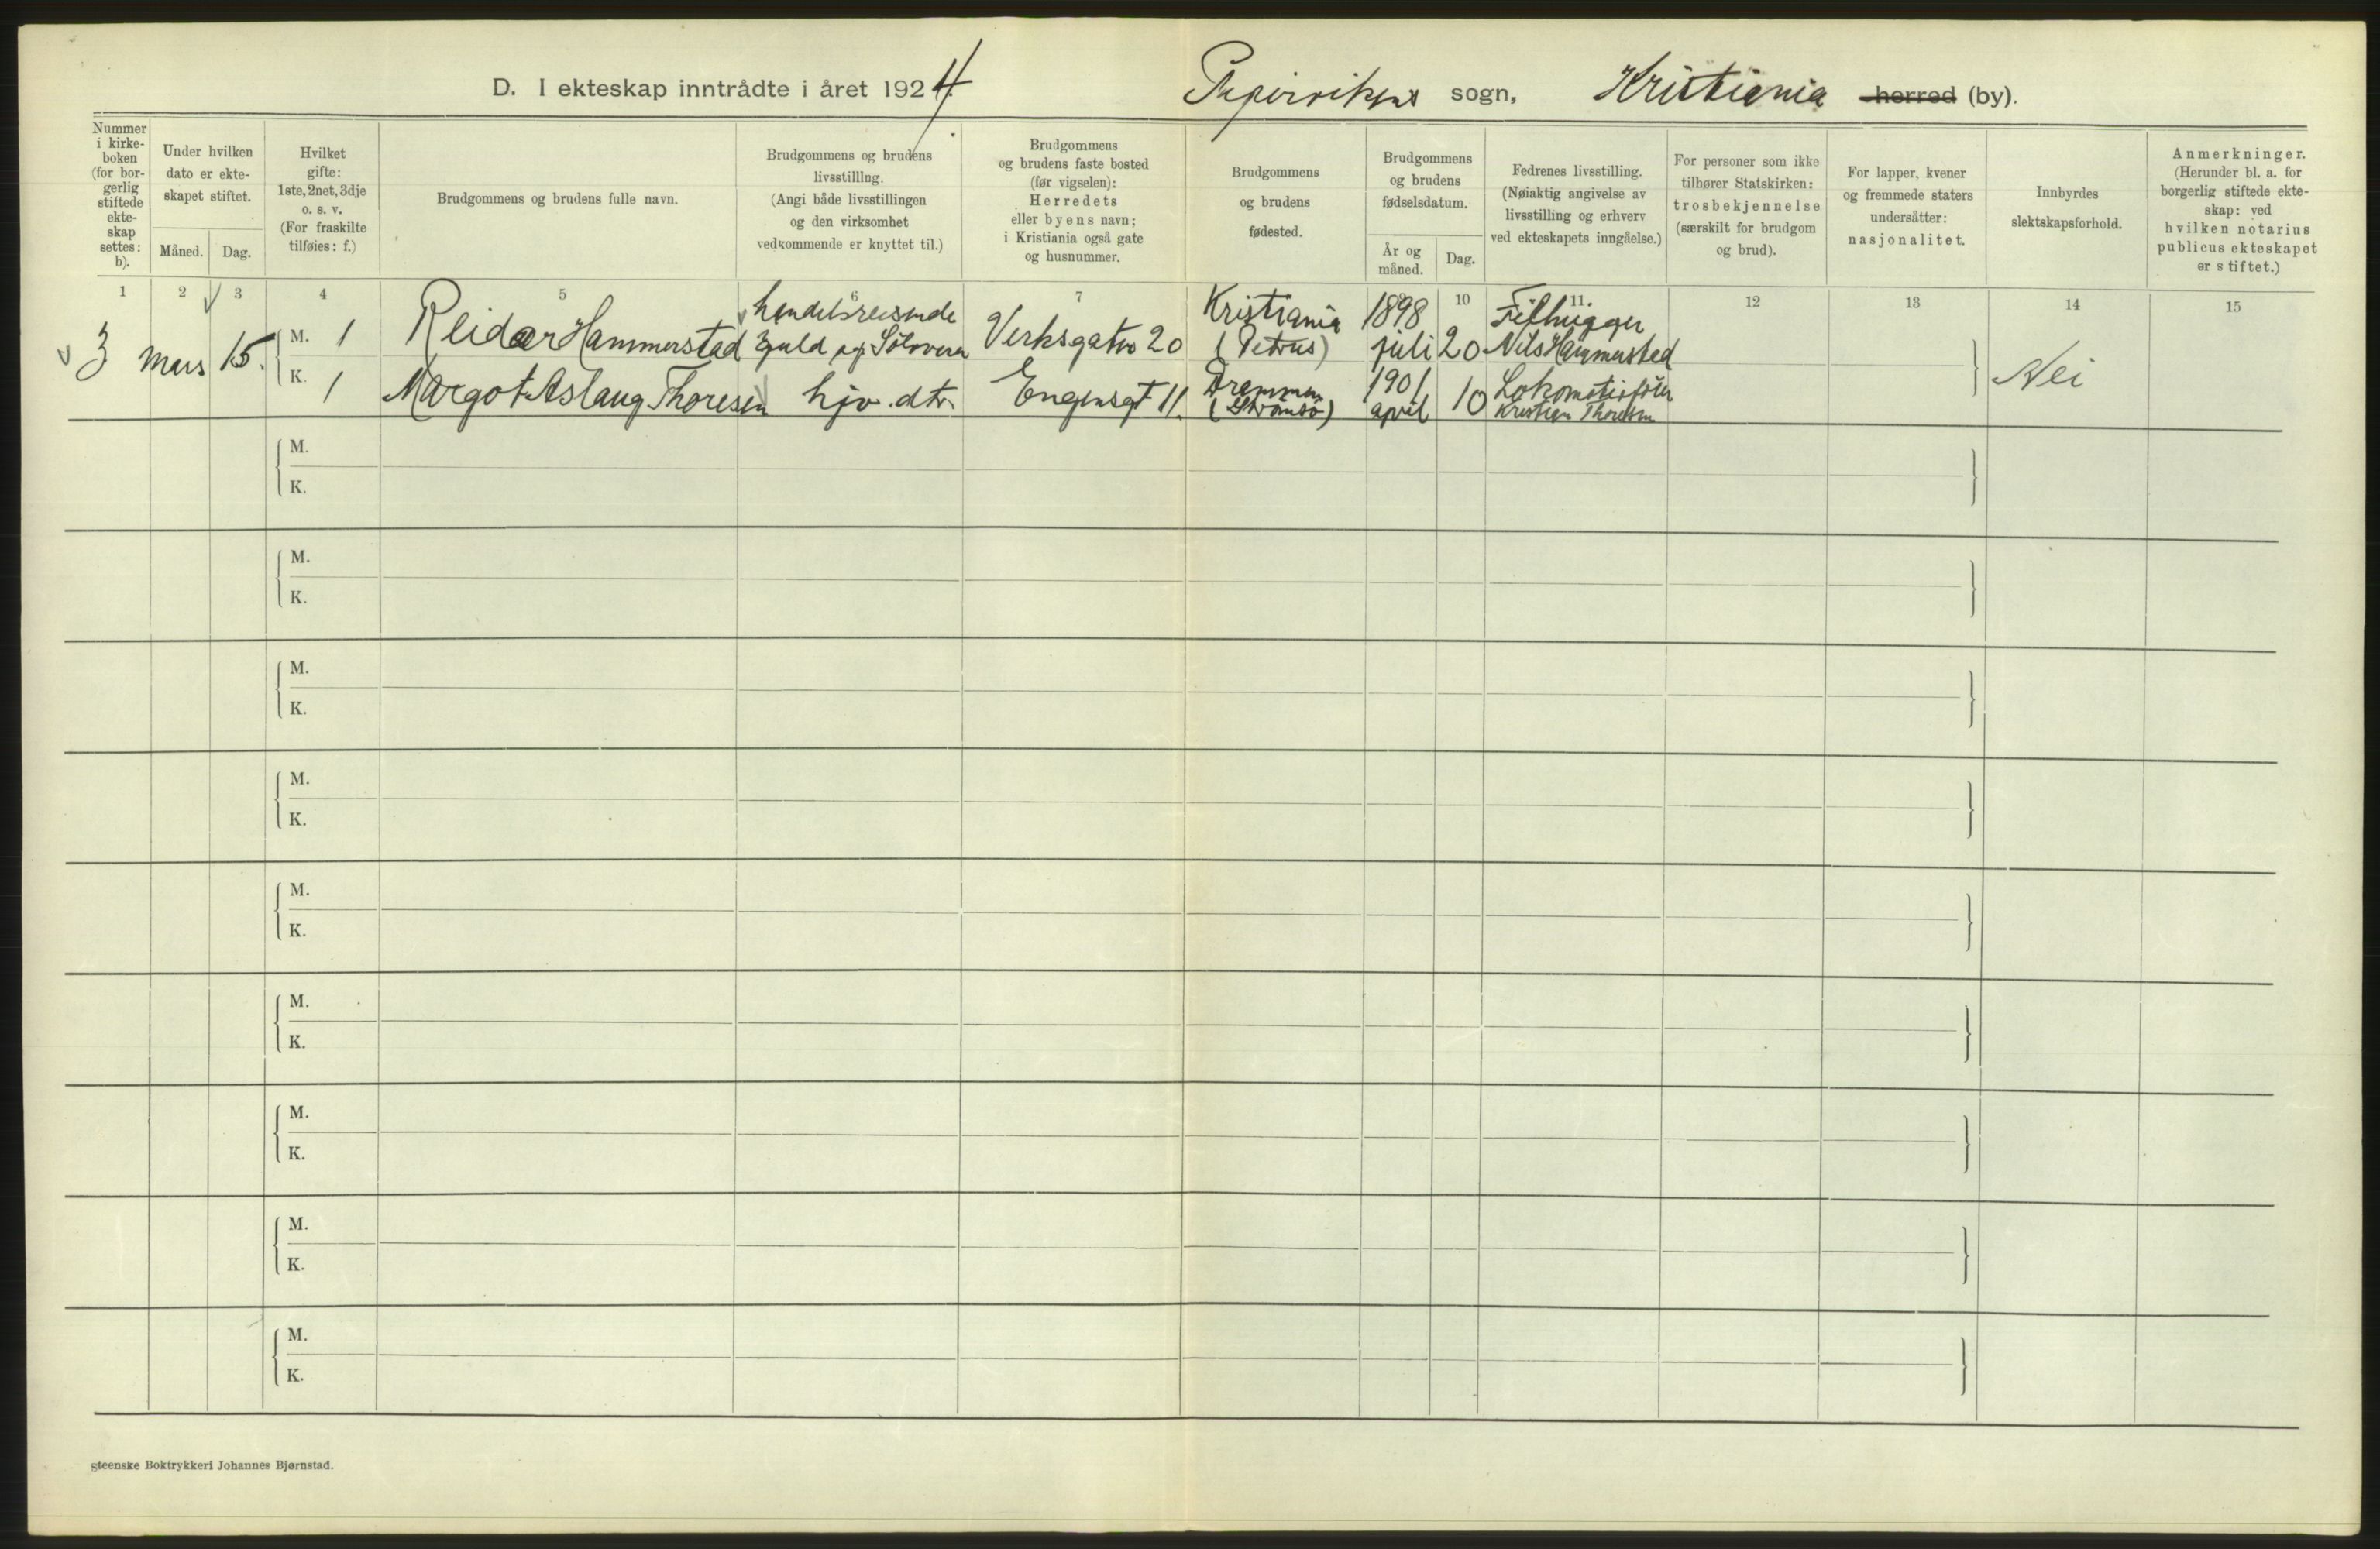 D. I ekteskap inntrådte i året 1924 Pipervikens sogn, Kristiania herred (by).
Nummer
i kirke-
boken
(for bor-
gerlig
stiftede
ekte-
skap
settes:
b).
Under hvilken
dato er ekte-
skapet stiftet.
Måned. Dag.
Hvilket
gifte:
1ste, 2net, 3dje
o. s. v.
(For fraskilte
tilføies: f.)
Brudgommens og brudens fulle navn.
Brudgommens og brudens
livsstilling.
(Angi både livsstillingen
og den virksomhet
vedkommende er knyttet til.)
Brudgommens
og brudens faste bosted
(før vigselen):
Herredets
eller byens navn;
i Kristiania også gate
og husnummer.
Brudgommens
og brudens
fødested.
Brudgommens
og brudens
fødselsdatum.
År og
måned.
Dag.
Fedrenes livsstilling.
(Nøiaktig angivelse av
livsstilling og erhverv
ved ekteskapets inngåelse.)
For personer som ikke
tilhører Statskirken:
trosbekjennelse
(særskilt for brudgom
og brud).
For lapper, kvener
og fremmede staters
undersåtter:
nasjonalitet.
Innbyrdes
slektskapsforhold.
Anmerkninger.
(Herunder bl. a. for
borgerlig stiftede ekte-
skap: ved
hvilken notarius
publicus ekteskapet
er stiftet.)
1 2 3 4 5 6 7 10 11. 12 13 14 15
3 mars 15.
M. 1 Reidar Hammerstad
handelsreisende
Guld og Sölvvarer
Verksgaten 20
Kristiania
(Petrus)
1898
juli 20
Filhugger
Nils Hammerstad
K. 1 Margot Aslaug Thoresen hjv. dtr. Engensgt 11.
Drammen
(Strömsö)
1901
april 10
Lokomotivförer
Kristian Thoresen
Nei
M.
K.
M.
K.
M.
K.
M.
K.
M.
K.
M.
K.
M.
K.
M.
K.
M.
K.
steenske Boktrykkeri Johannes Bjørnstad.